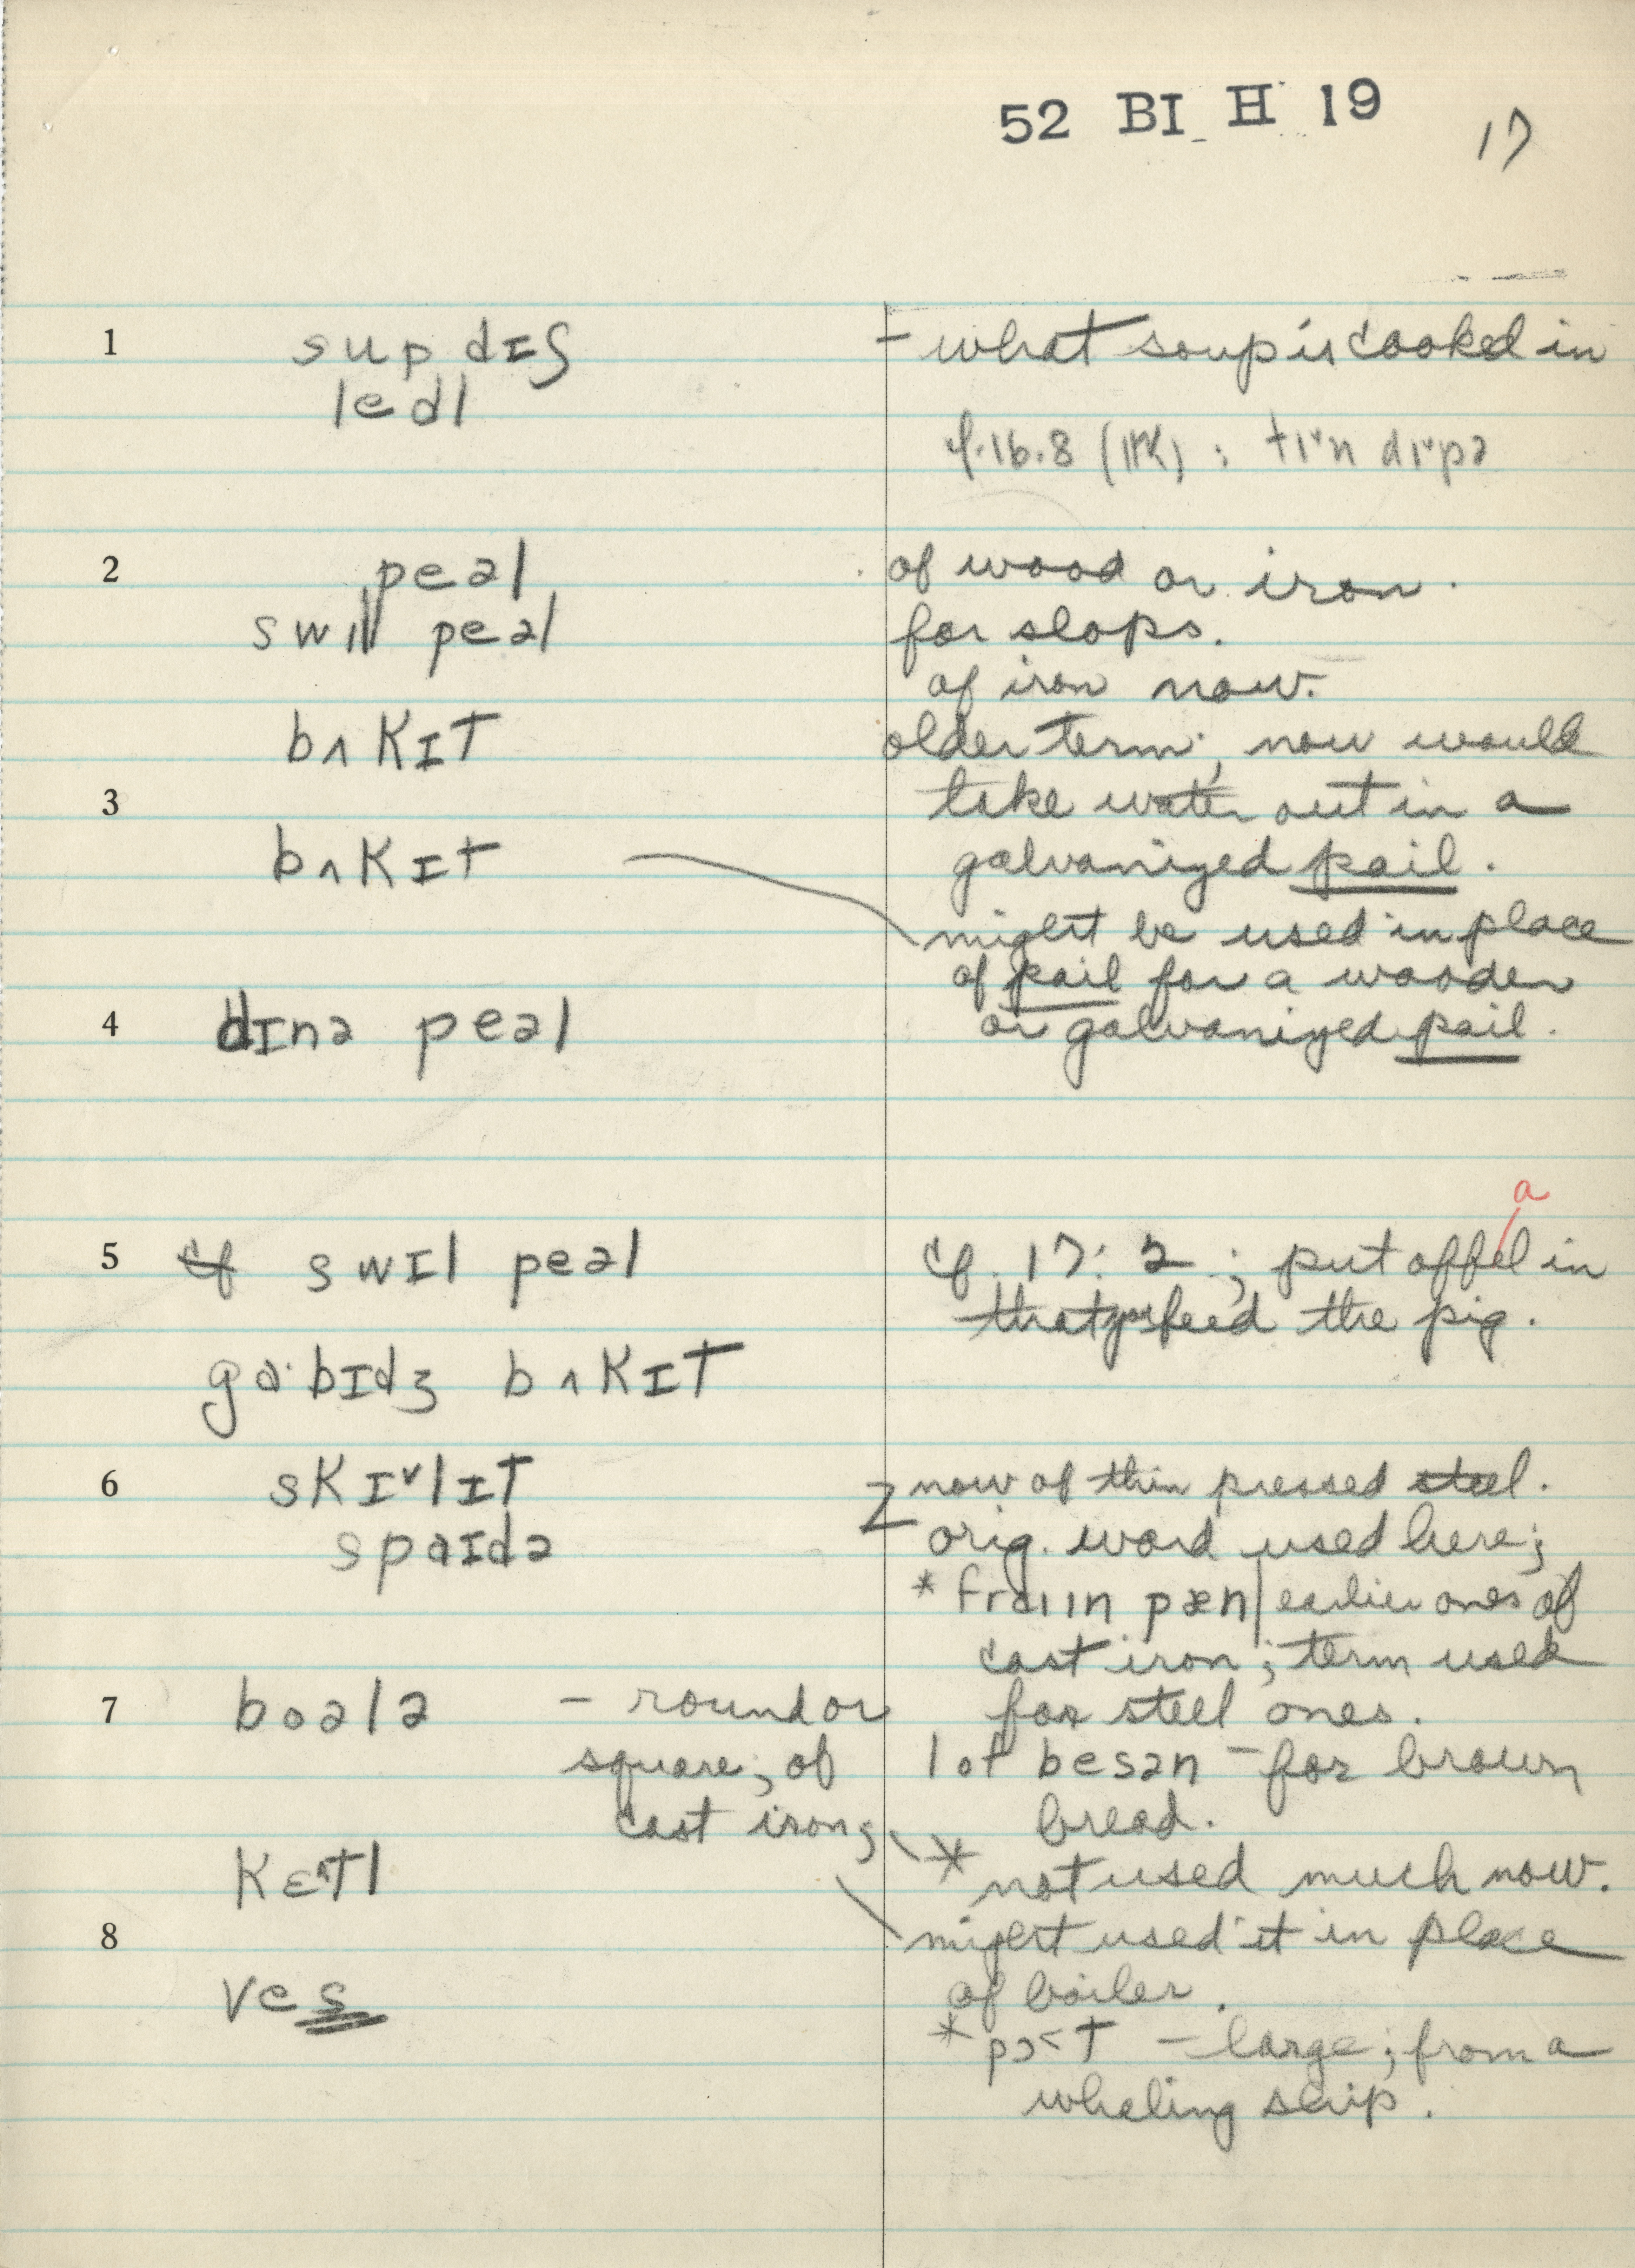 52 BI H 19 17
1 sup dɪʃ - what soup is cooked in
ledl
cf. 16.8 : tɪ˅n dɪ˅pə
2 peəl of wood or iron.
swɪl peəl for slops.
of iron now.
bʌkɪt older term; now would
3 take water out in a
bʌkɪt galvanized pail.
might be used in place
of pail for a wooden
4 dɪnə peəl or galvanized pail.
a
5 cf swɪl peəl cf. 17:2; put offel in
that feed the pig.
ga·bɪdʒ bʌkɪt
6 skɪ˅lɪt now of thin pressed steel.
spaɪdə orig. word used here;
* fraiin pæn earlier ones of
cast iron; term used
7 boələ - round or for steel ones.
square; of lof besən - for brown
cast iron; bread.
kɛ^tl * not used much now.
8 might used it in place
ves of boiler.
* pɔ˂t - large; from a
whaling ship.